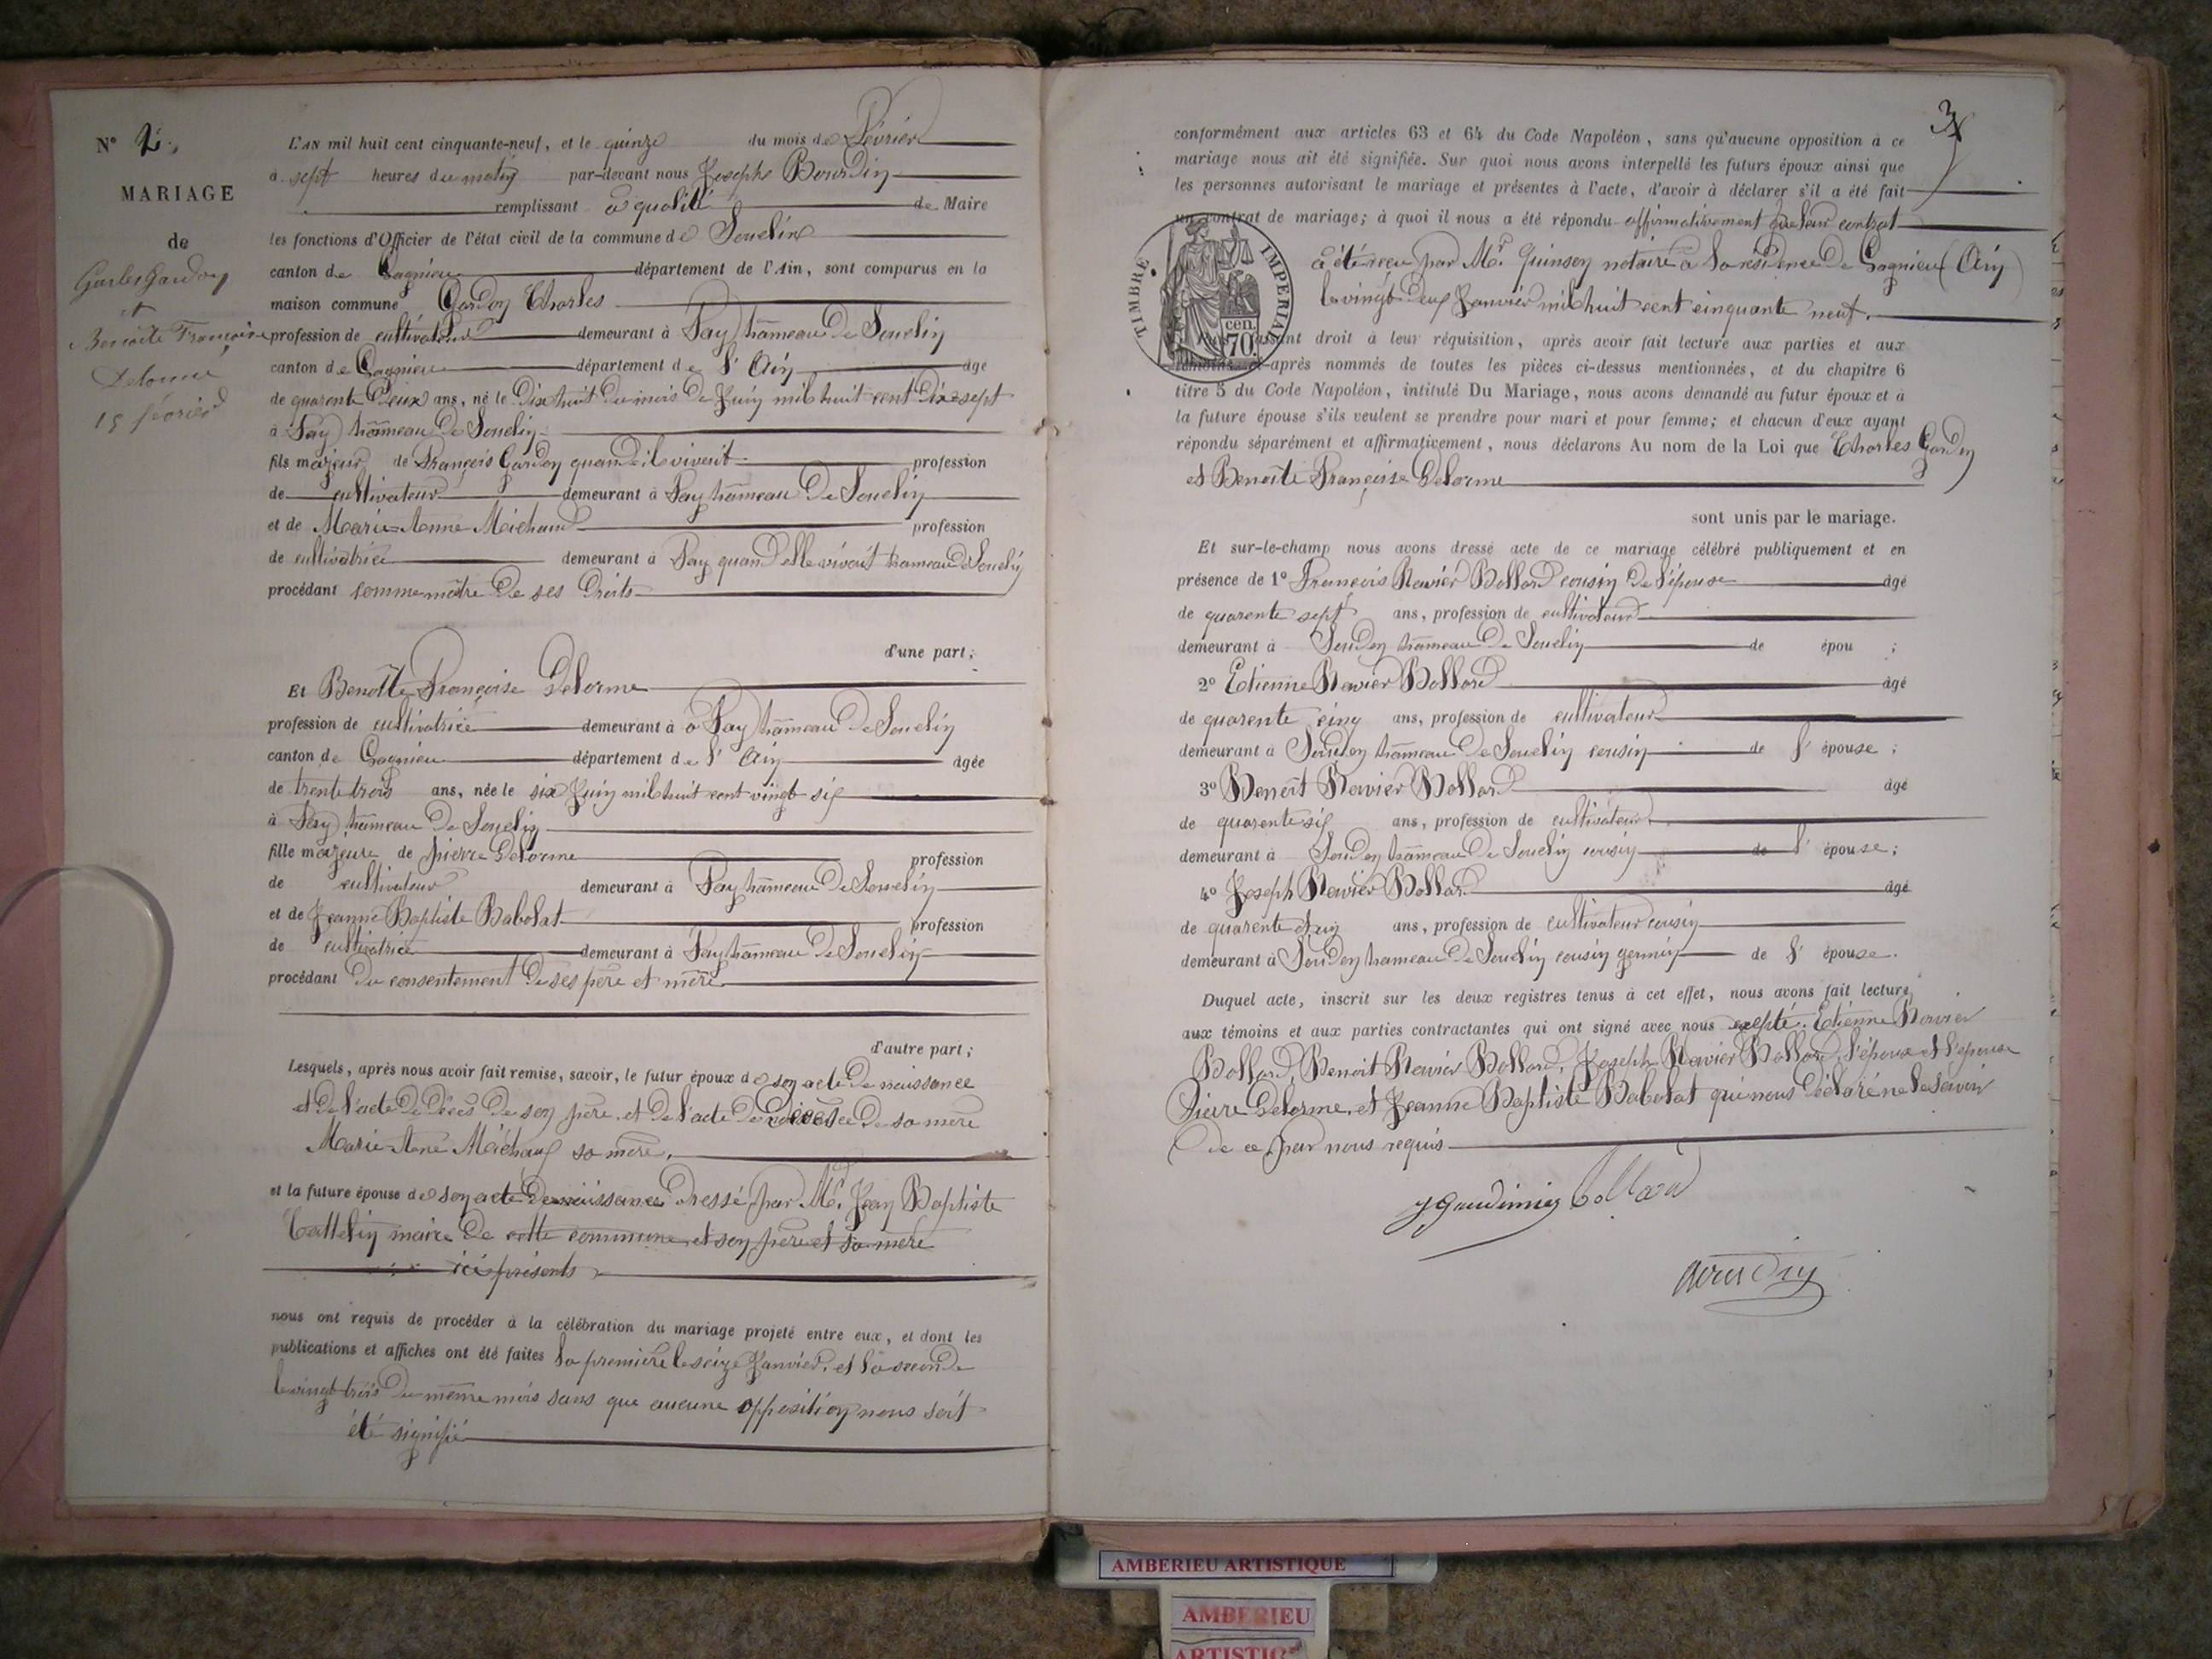 N° 2.
MARIAGE
de
Charles Gardon
et
Benoite Françoise
Delorme
15 février
L'AN mil huit cent cinquante-neuf, et le quinze du mois de Février
à sept heures du matin par-devant nous Josephe Bourdin
remplissant en qualité de Maire
les fonctions d'Officier de l'état civil de la commune de Souclin
canton de Lagnieu département de l'Ain, sont comparus en la
maison commune Gardon Charles
profession de cultivateur demeurant à Fay hameau de Souclin
canton de Lagnieu département de l'Ain âgé
de quarente Deux ans, né le Dix huit du mois de Juin mil huit cent dix sept
à Fay hameau de Souclin
fils majeur de François Gardon quand il vivait profession
de cultivateur demeurant à Fay hameau de Souclin
et de Marie=Anne Michaud profession
de cultivatrice demeurant à Fay quand elle vivait hameau de Souclin
procédant comme maître de ses Droits
d'une part;
Et Benoîte Françoise Delorme
profession de cultivatrice demeurant à à Fay hameau de Souclin
canton de Lagnieu département de l'Ain âgée
de trente trois ans, née le six Juin mil huit cent vingt six
à Fay hameau de Souclin
fille majeure de pierre Delorme profession
de cultivateur demeurant à Fay hameau de Souclin
et de Jeanne Baptiste Babolat profession
de cultivatrice demeurant à Fay hameau de Souclin
procédant du consentement de ses père et mère
d'autre part;
Lesquels, après nous avoir fait remise, savoir, le futur époux de son acte de naissance
et de l'acte de Décès de son père et de l'acte de de sa mère
Marie Anne Michaud sa mère.
et la future épouse de son acte de naissance dressé par Mr. Jean Baptiste
Cattelin maire de cette commune et son père et sa mère
ici présents
nous ont requis de procéder à la célébration du mariage projeté entre eux, et dont les
publications et affiches ont été faites la première le seize Janvier, et la seconde
le vingt trois du même mois sans que aucune opposition nous soit
été signifié
3
conformément aux articles 63 et 64 du Code Napoléon, sans qu'aucune opposition à ce
mariage nous ait été signifiée. Sur quoi nous avons interpellé les futurs époux ainsi que
les personnes autorisant le mariage et présentes à l'acte, d'avoir à déclarer s'il a été fait
un contrat de mariage; à quoi il nous a été répondu affirmativement que leur contrat
à été reçu par Mr. Quinson notaire à la résidence de Lagnieu (Ain)
le vingt deux Janvier mil huit cent cinquante neuf.
TIMBRE IMPERIAL
cen.
70.
Faisant droit à leur réquisition, après avoir fait lecture aux parties et aux
témoins ci-après nommés de toutes les pièces ci-dessus mentionnées, et du chapitre 6
titre 5 du Code Napoléon, intitulé Du Mariage, nous avons demandé au futur époux et à
la future épouse s'ils veulent se prendre pour mari et pour femme; et chacun d'eux ayant
répondu séparément et affirmativement, nous déclarons Au nom de la Loi que Charles Gardon
et Benoîte Françoise Delorme
sont unis par le mariage.
Et sur-le-champ nous avons dressé acte de ce mariage célébré publiquement et en
présence de 1° François Bollard cousin de l'épouse âgé
de quarente sept ans, profession de cultivateur
demeurant à Soudon hameau de Souclin de épou ;
2° Etienne Bollard âgé
de quarente cinq ans, profession de cultivateur
demeurant à Soudon hameau de Souclin cousin de l'épouse;
3° Benoit Bollard âgé
de quarente six ans, profession de cultivateur
demeurant à Soudon hameau de Souclin cousin de l'épouse;
4° Joseph Bollard âgé
de quarente et un ans, profession de cultivateur cousin
demeurant à Soudon hameau de Souclin cousin germin de l'épouse.
Duquel acte, inscrit sur les deux registres tenus à cet effet, nous avons fait lecture
aux témoins et aux parties contractantes qui ont signé avec nous exepté. Etienne
Bollard, Benoit Bollard, Joseph Bollard, l'époux et l'épouse
Pierre Delorme, et Jeanne Baptiste Babolat qui nous déclaré ne le savoir
De ce par nous requis
Bollard
Bourdin
AMBERIEU ARTISTIQUE
AMBERIEU
ARTISTIQ